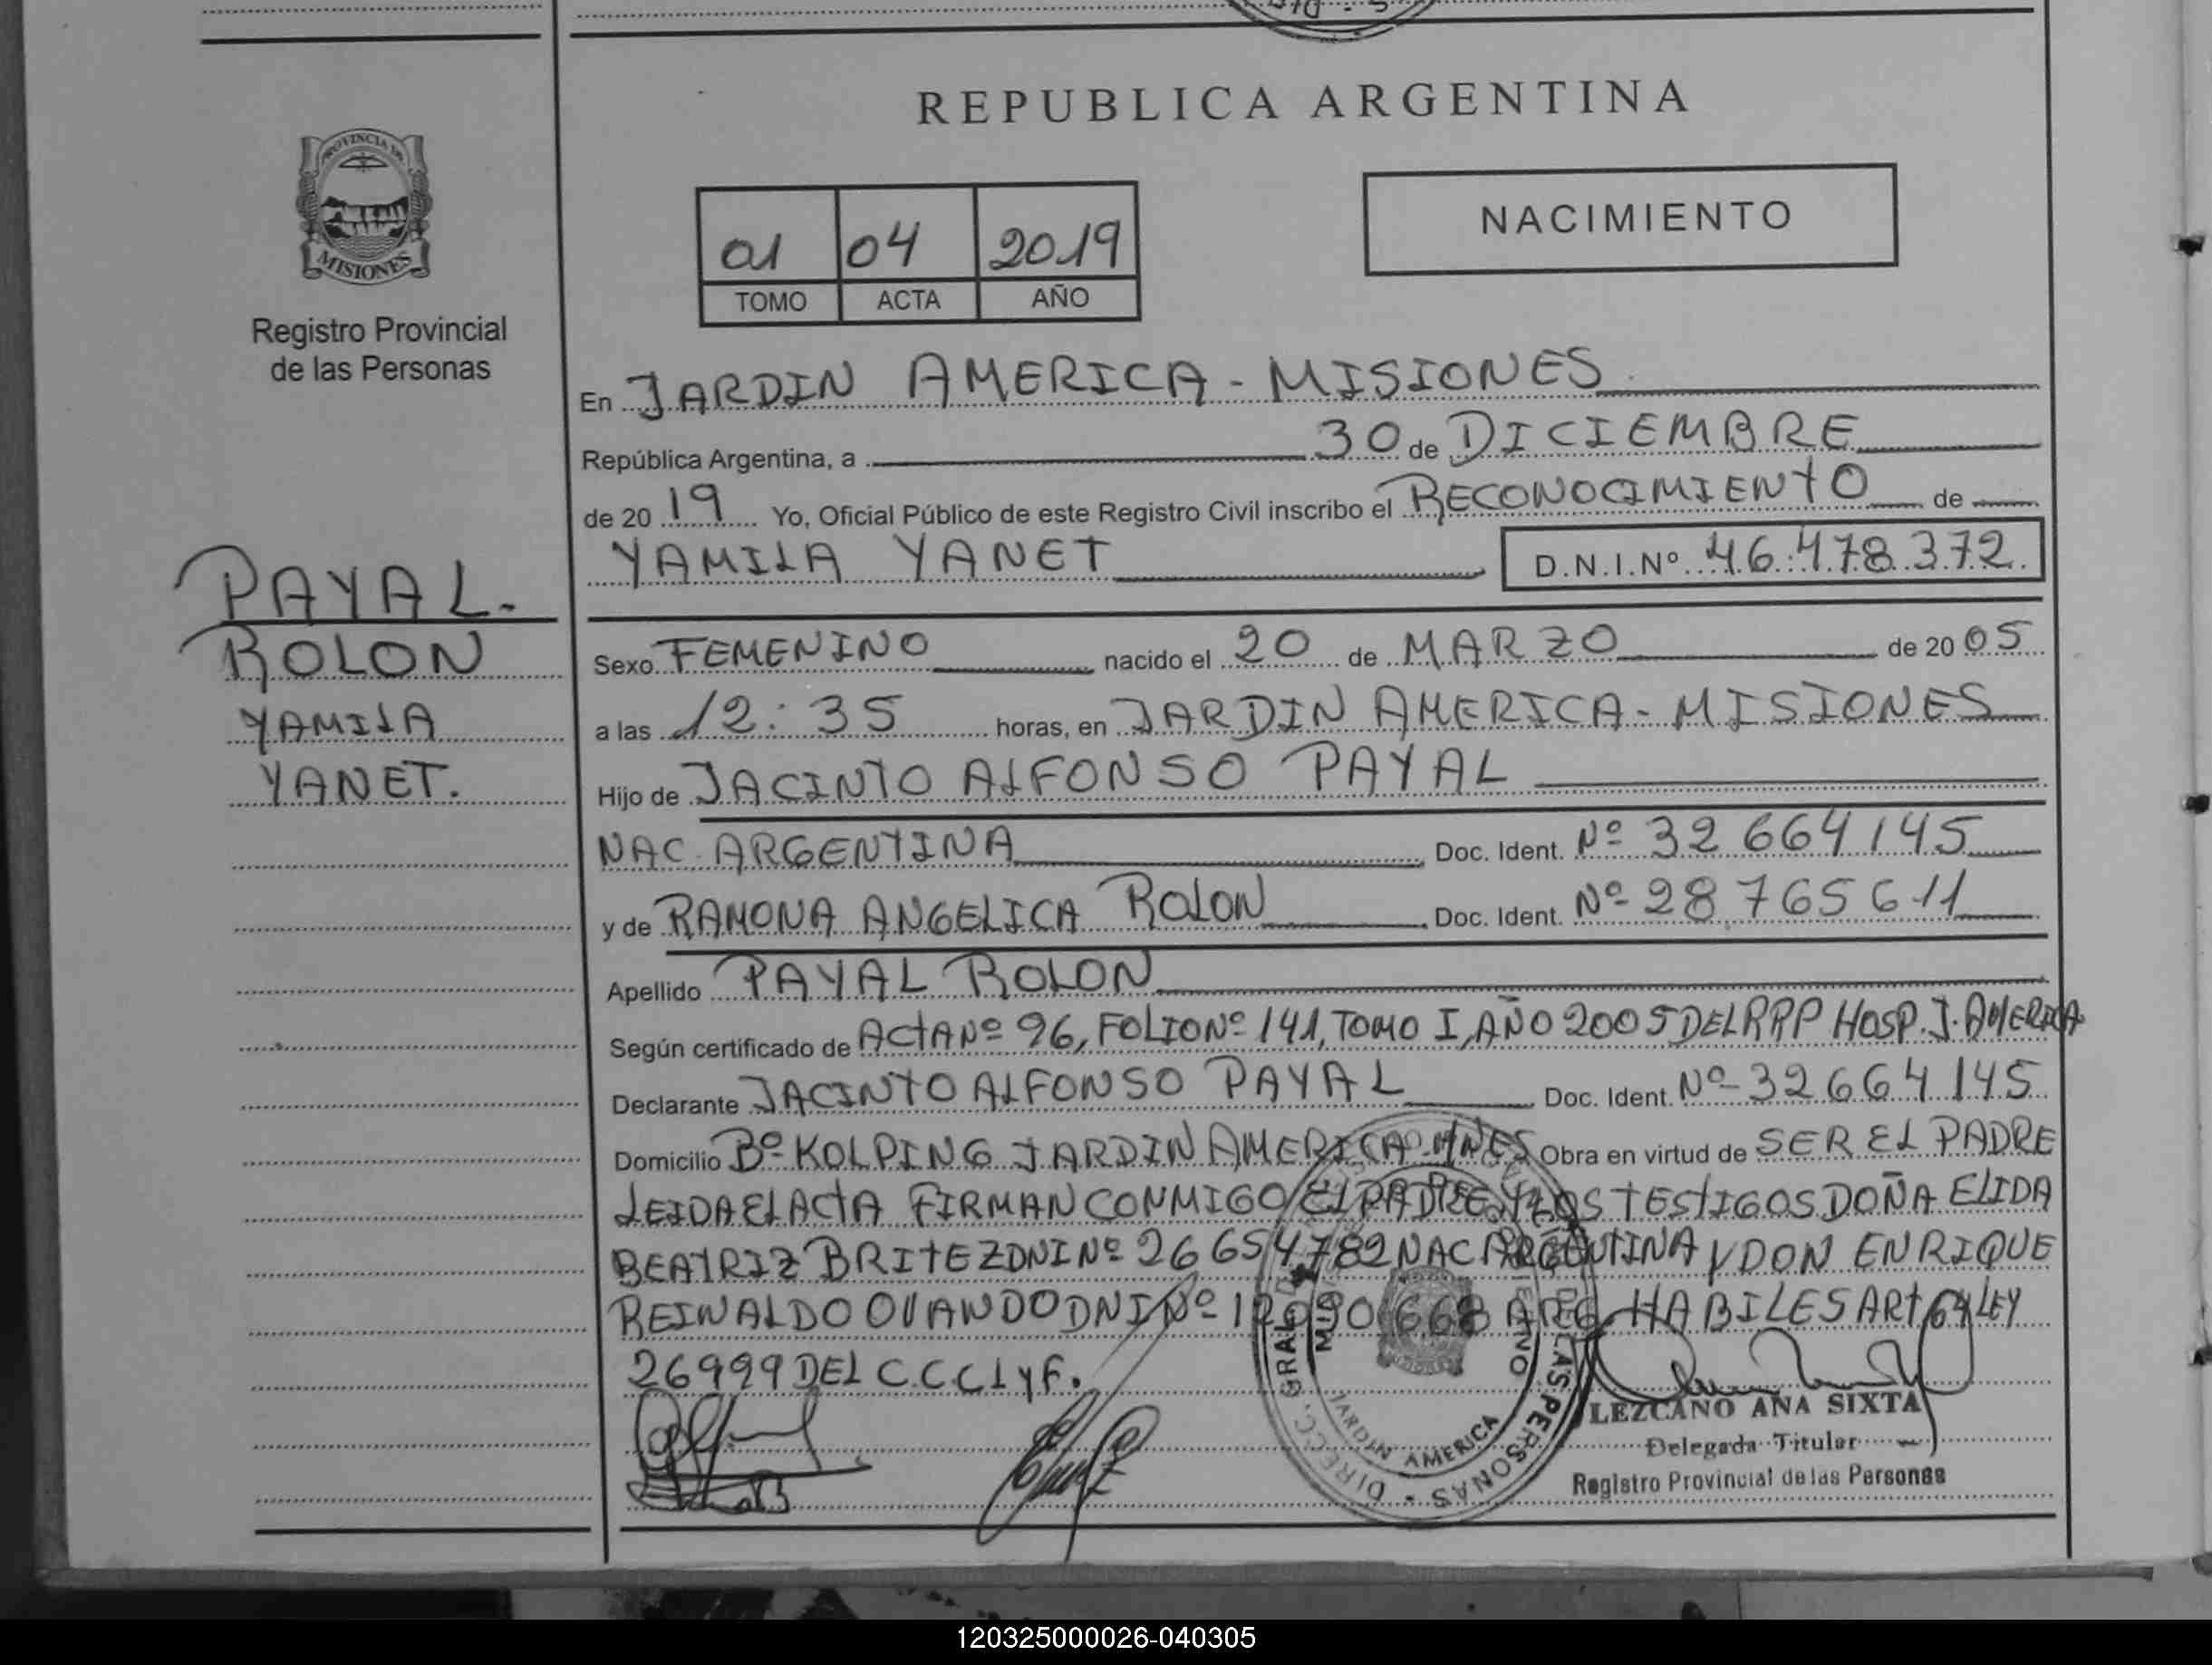 REPUBLICA ARGENTINA
PROVINCIA DE
MISIONES
Registro Provincial
de las Personas
01 04 2019
TOMO ACTA AÑO
NACIMIENTO
En JARDIN AMERICA - MISIONES
República Argentina, a 30 de DICIEMBRE
de 20 19 Yo, Oficial Público de este Registro Civil inscribo el RECONOCIMIENTO de
YAMILA YANET D.N.I.Nº 46.478.372
PAYAL-
ROLON
YAMILA
YANET.
Sexo FEMENINO nacido el 20 de MARZO de 20 05
a las 12:35 horas, en JARDIN AMERICA - MISIONES
Hijo de JACINTO ALFONSO PAYAL
NAC. ARGENTINA Doc. Ident. Nº 32 664 145
y de RAMONA ANGELICA ROLON Doc. Ident. Nº 28 765 611
Apellido PAYAL ROLON
Según certificado de ACTA Nº 96, FOLIO Nº 141, TOMO I, AÑO 2005 DEL RPP HOSP. J. AMERICA
Declarante JACINTO ALFONSO PAYAL Doc. Ident. Nº 32 664 145
Domicilio Bº KOLPING JARDIN AMERICA - MNES Obra en virtud de SER EL PADRE
LEIDA EL ACTA FIRMAN CONMIGO EL PADRE Y LOS TESTIGOS DOÑA ELIDA
BEATRIZ BRITEZ DNI Nº 26 654 782 NAC ARGENTINA Y DON ENRIQUE
REINALDO OVANDO DNI Nº 12090668 ARG HABILES ART 64 LEY
26999 DEL C.C.C.L y F.
DIRECC. GRAL LAS PERSONAS
JARDIN AMERICA
LEZCANO ANA SIXTA
Delegada Titular
Registro Provincial de las Personas
120325000026-040305